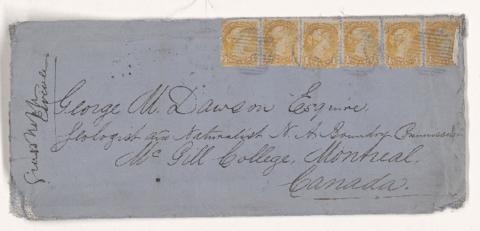 George M. Dawson Esquire
Geologist and Naturalist N. A. Boundry Commission
Mc Gill College, Montreal.
Canada.